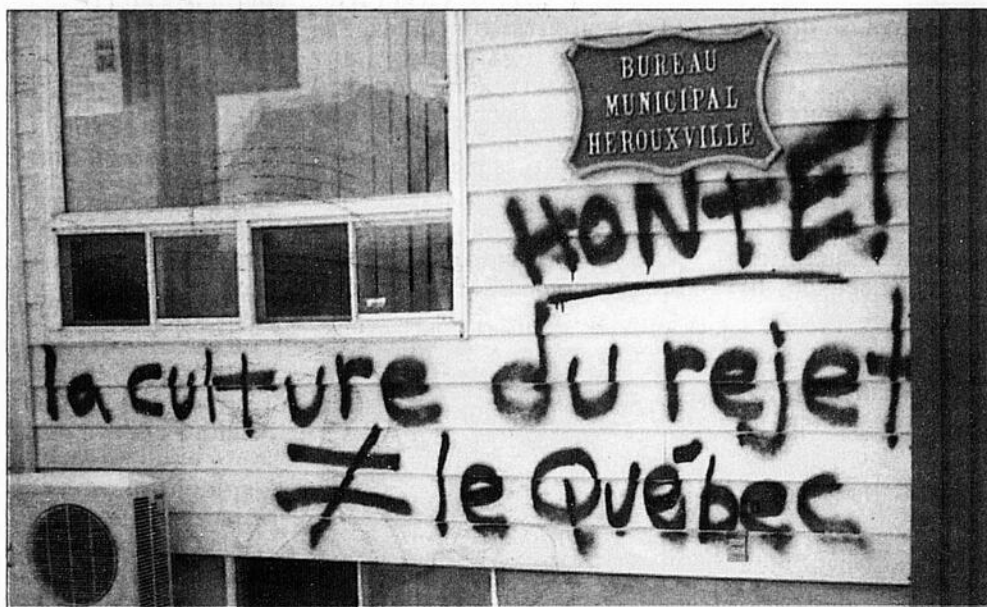 BUREAU
MUNICIPAL
HEROUXVILLE
HONTE!
la culture du rejet
≠ le Québec